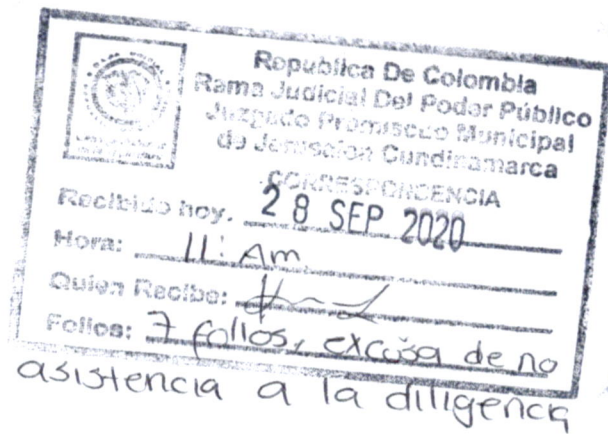 Republica De Colombia
Rama Judicial Del Poder Público
Juzgado Promiscuo Municipal
de Jerusalen Cundinamarca
CORRESPONDENCIA
Recibido hoy. 28 SEP 2020
Hora: 11: Am
Quien Recibe:
Folios: 7 folios, excusa de no
asistencia a la diligencia